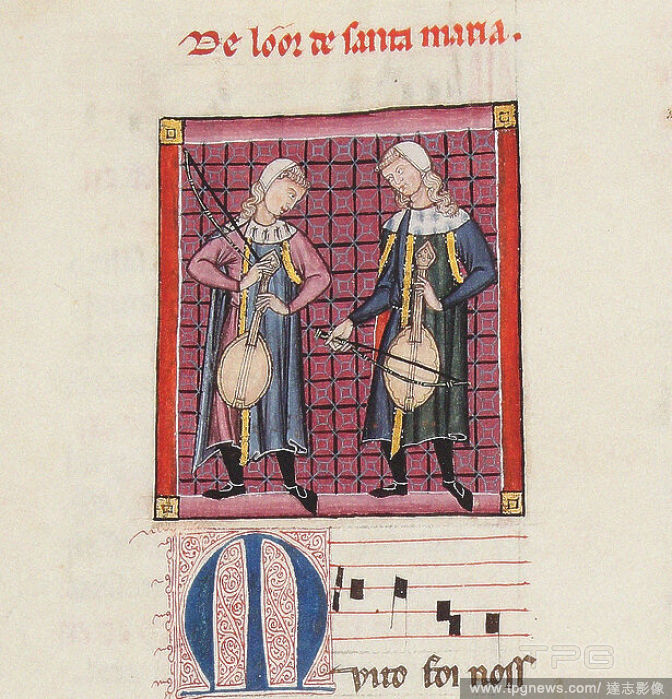 De lóor de santa maria.
Muito foi noss
TPG
www.tpgnews.com/ 達志影像